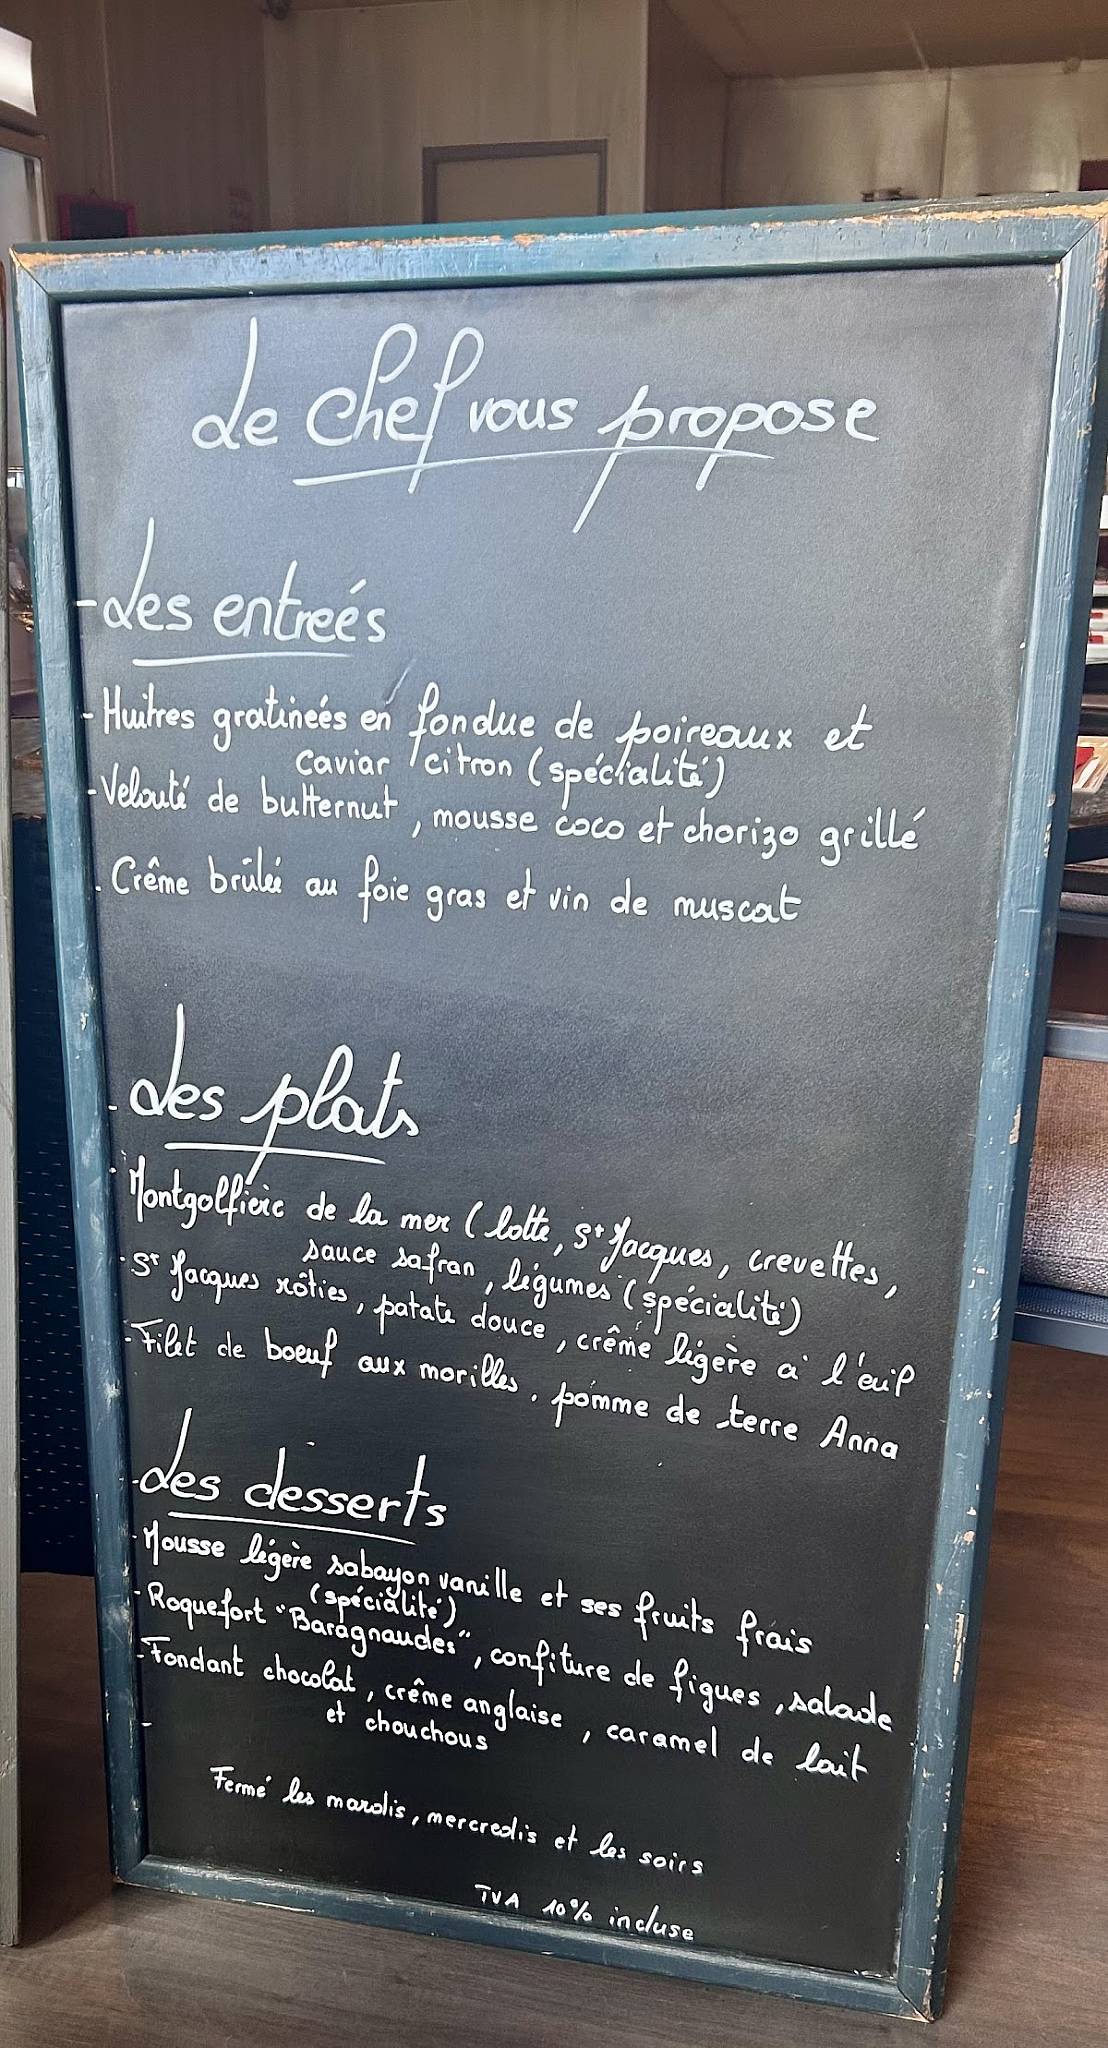 Le chef vous propose
- Les entreés
- Huitres gratineés en fondue de poireaux et
caviar citron (spécialité)
- Velouté de butternut, mousse coco et chorizo grillé
. Crême brûlée au foie gras et vin de muscat
. Les plats
. Montgolfière de la mer (lotte, St Jacques, crevettes,
sauce safran, légumes (spécialité)
. St Jacques rôties, patate douce, crême légère à l'ail
- Filet de boeuf aux morilles, pomme de terre Anna
. Les desserts
. Mousse légère sabayon vanille et ses fruits frais
(spécialité)
- Roquefort "Baragnaudes", confiture de figues, salade
- Fondant chocolat, crême anglaise, caramel de lait
et chouchous
-
Fermé les mardis, mercredis et les soirs
TVA 10% incluse